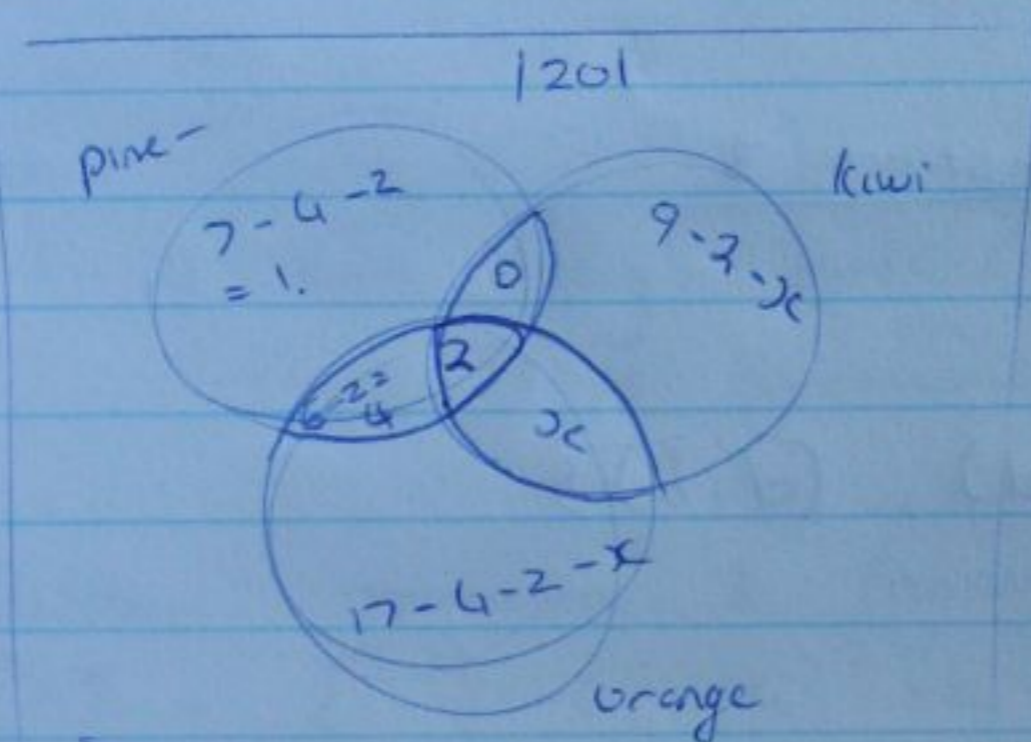 |20|
pine-
kiwi
7-4-2
= 1.
9-2-x
0
2
6-2=
4
x
17-4-2-x
orange